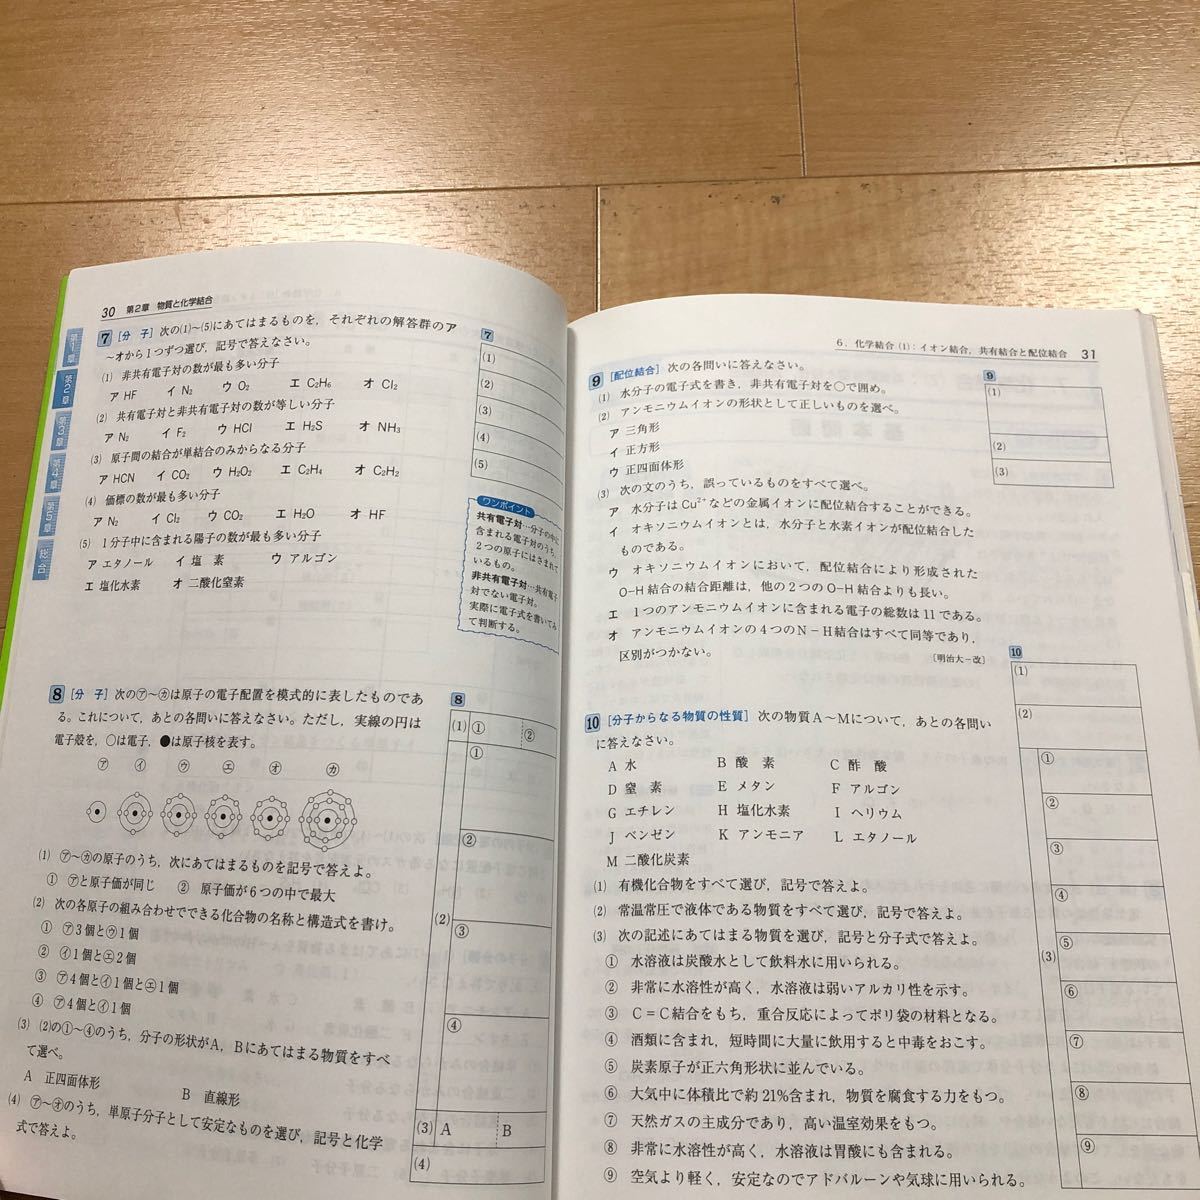 30 第2章 物質と化学結合
第1章
第2章
第3章
第4章
第5章
総合
7 [分 子] 次の(1)~(5)にあてはまるものを，それぞれの解答群のア
~オから1つずつ選び，記号で答えなさい。
(1) 非共有電子対の数が最も多い分子
ア HF イ N₂ ウ O₂ エ C₂H₆ オ Cl₂
(2) 共有電子対と非共有電子対の数が等しい分子
ア N₂ イ F₂ ウ HCl エ H₂S オ NH₃
(3) 原子間の結合が単結合のみからなる分子
ア HCN イ CO₂ ウ H₂O₂ エ C₂H₄ オ C₂H₂
(4) 価標の数が最も多い分子
ア N₂ イ Cl₂ ウ CO₂ エ H₂O オ HF
(5) 1分子中に含まれる陽子の数が最も多い分子
ア エタノール イ 塩 素 ウ アルゴン
エ 塩化水素 オ 二酸化窒素
7
(1)
(2)
(3)
(4)
(5)
ワンポイント
共有電子対…分子の中に
含まれる電子対のうち，
2つの原子にはさまれて
いるもの。
非共有電子対…共有電子
対でない電子対。
実際に電子式を書いてみ
て判断する。
8 [分 子] 次の㋐~㋕は原子の電子配置を模式的に表したものであ
る。これについて，あとの各問いに答えなさい。ただし，実線の円は
電子殻を，○は電子，●は原子核を表す。
㋐ ㋑ ㋒ ㋓ ㋔ ㋕
(1) ㋐~㋕の原子のうち，次にあてはまるものを記号で答えよ。
① ㋐と原子価が同じ ② 原子価が6つの中で最大
(2) 次の各原子の組み合わせでできる化合物の名称と構造式を書け。
① ㋐3個と㋒1個
② ㋑1個と㋓2個
③ ㋐4個と㋑1個と㋓1個
④ ㋐4個と㋑1個
(3) (2)の①~④のうち，分子の形状がA，Bにあてはまる物質をすべ
て選べ。
A 正四面体形 B 直線形
(4) ㋐~㋔のうち，単原子分子として安定なものを選び，記号と化学
式で答えよ。
8
(1) ① ②
①
②
(2)
③
④
(3) A B
(4)
6. 化学結合(1)：イオン結合，共有結合と配位結合 31
9 [配位結合] 次の各問いに答えなさい。
(1) 水分子の電子式を書き，非共有電子対を○で囲め。
(2) アンモニウムイオンの形状として正しいものを選べ。
ア 三角形
イ 正方形
ウ 正四面体形
(3) 次の文のうち，誤っているものをすべて選べ。
ア 水分子はCu²⁺などの金属イオンに配位結合することができる。
イ オキソニウムイオンとは，水分子と水素イオンが配位結合した
ものである。
ウ オキソニウムイオンにおいて，配位結合により形成された
O-H結合の結合距離は，他の2つのO-H結合よりも長い。
エ 1つのアンモニウムイオンに含まれる電子の総数は11である。
オ アンモニウムイオンの4つのN-H結合はすべて同等であり，
区別がつかない。 〔明治大-改〕
9
(1)
(2)
(3)
10 [分子からなる物質の性質] 次の物質A~Mについて，あとの各問い
に答えなさい。
A 水 B 酸 素 C 酢 酸
D 窒 素 E メタン F アルゴン
G エチレン H 塩化水素 I ヘリウム
J ベンゼン K アンモニア L エタノール
M 二酸化炭素
(1) 有機化合物をすべて選び，記号で答えよ。
(2) 常温常圧で液体である物質をすべて選び，記号で答えよ。
(3) 次の記述にあてはまる物質を選び，記号と分子式で答えよ。
① 水溶液は炭酸水として飲料水に用いられる。
② 非常に水溶性が高く，水溶液は弱いアルカリ性を示す。
③ C=C結合をもち，重合反応によってポリ袋の材料となる。
④ 酒類に含まれ，短時間に大量に飲用すると中毒をおこす。
⑤ 炭素原子が正六角形状に並んでいる。
⑥ 大気中に体積比で約21%含まれ，物質を腐食する力をもつ。
⑦ 天然ガスの主成分であり，高い温室効果をもつ。
⑧ 非常に水溶性が高く，水溶液は胃酸にも含まれる。
⑨ 空気より軽く，安定なのでアドバルーンや気球に用いられる。
10
(1)
(2)
①
②
③
④
(3)
⑤
⑥
⑦
⑧
⑨